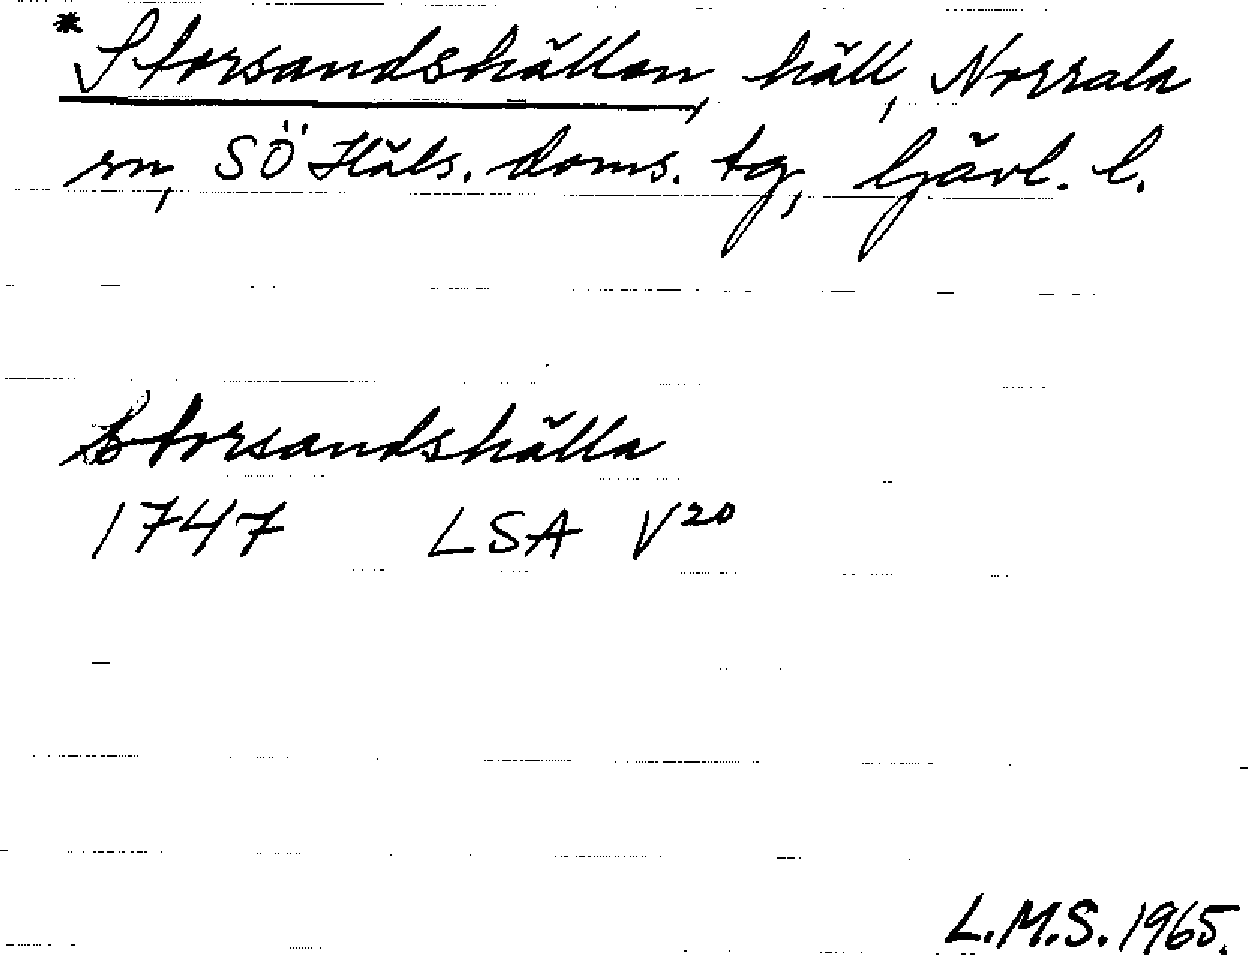 *Storsandshällan, häll, Norrala
sn, SÖ Häls. doms. tg, Gävl. l.
Storsandshälla
1747 LSA V20
L.M.S. 1965.